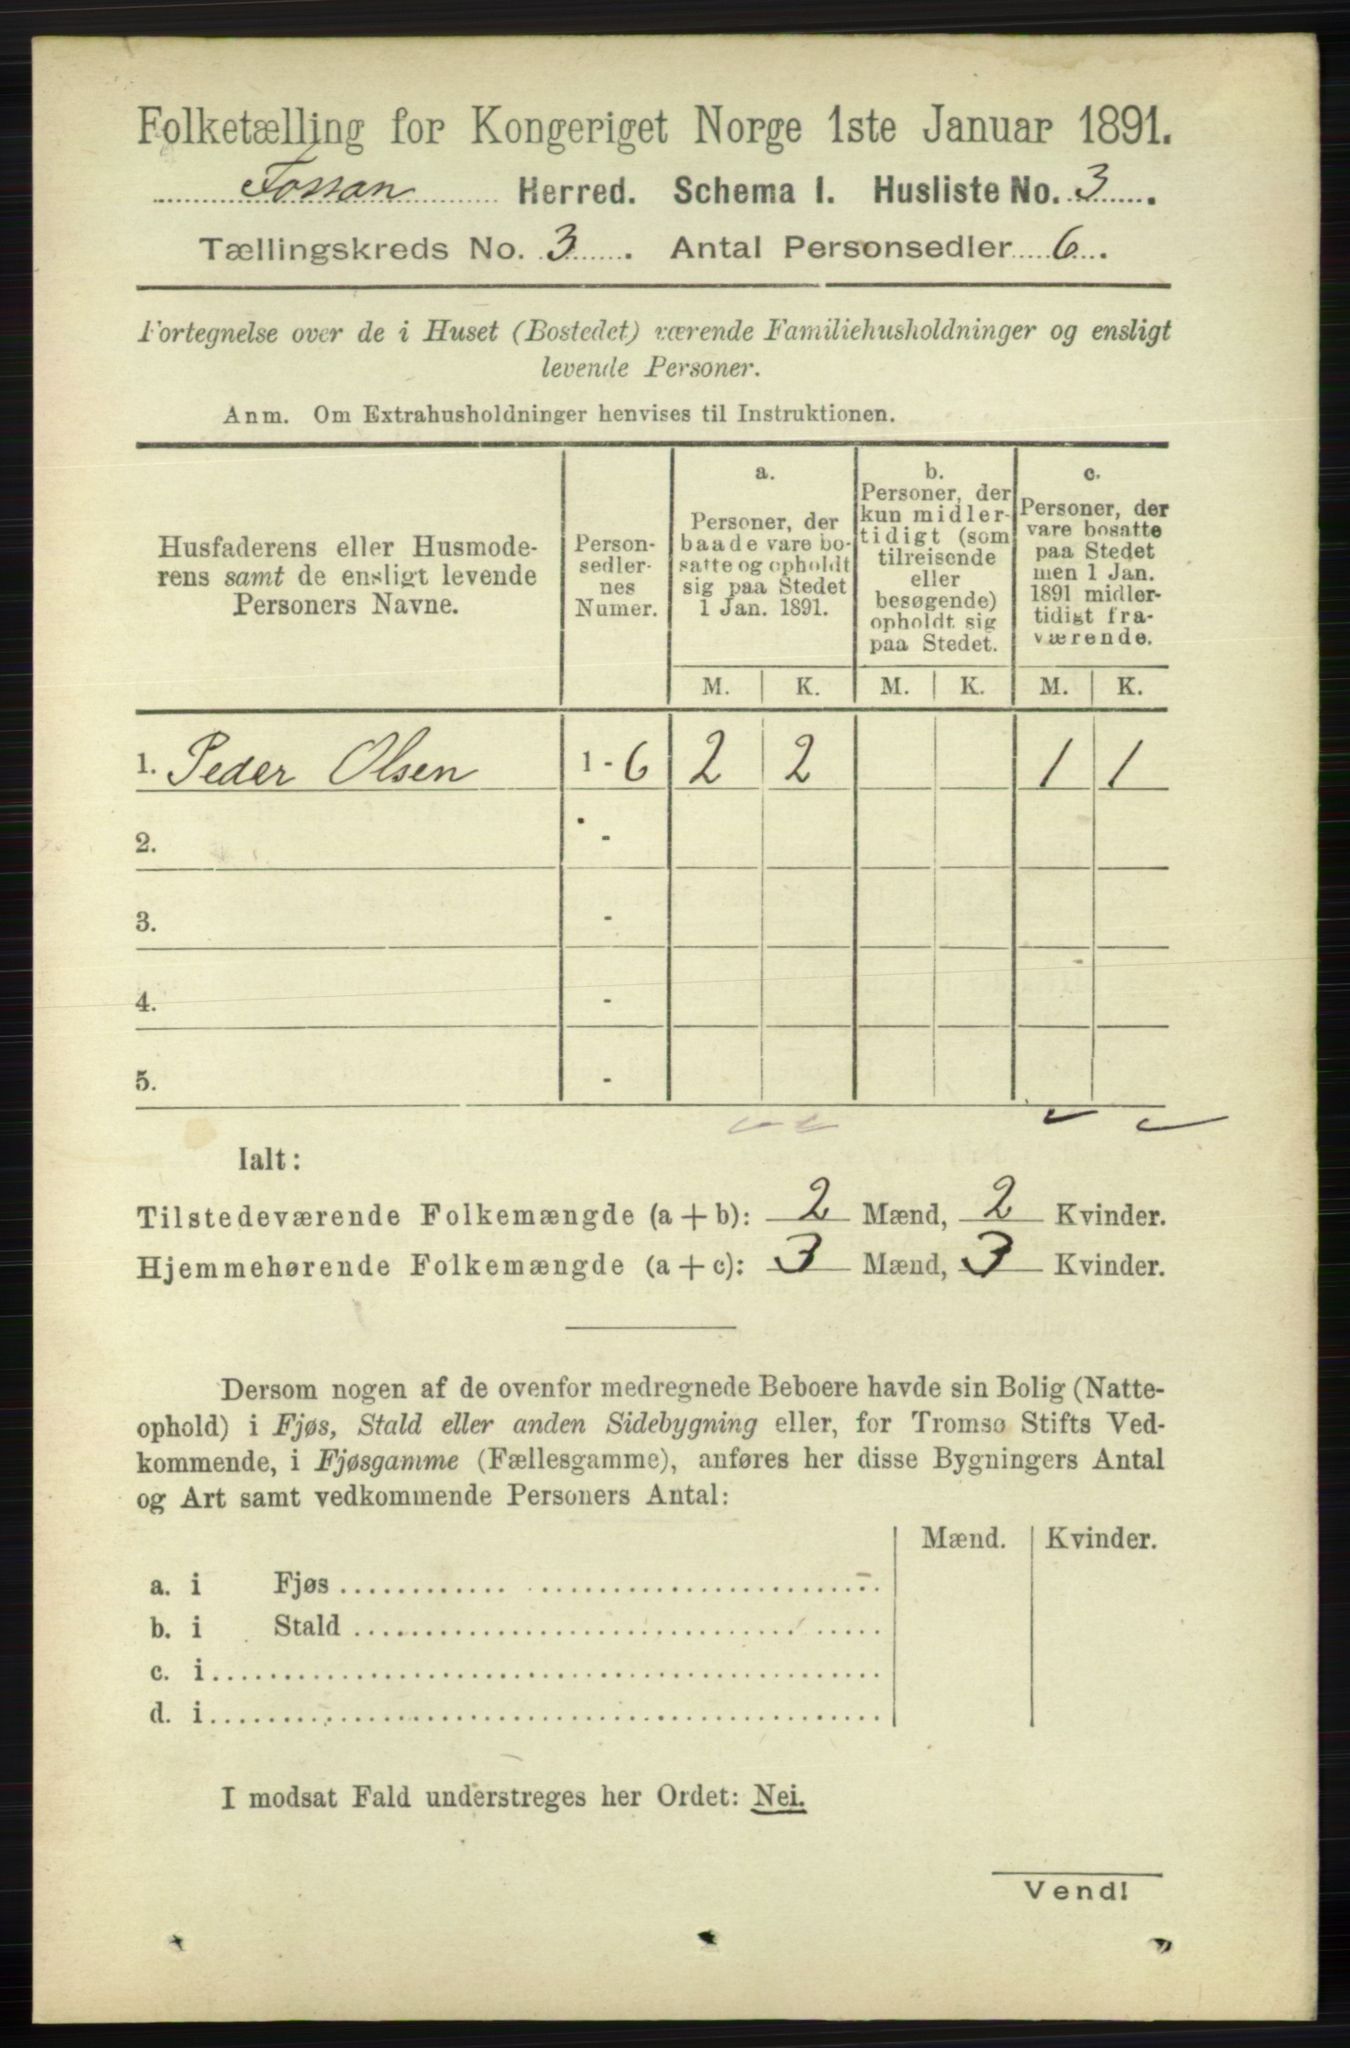 Folketælling for Kongeriget Norge 1ste Januar 1891.
Fossan Herred. Schema I. Husliste No. 3.
Tællingskreds No. 3. Antal Personsedler 6.
Fortegnelse over de i Huset (Bostedet) værende Familiehusholdninger og ensligt
levende Personer.
Anm. Om Extrahusholdninger henvises til Instruktionen.
Husfaderens eller Husmode-
rens samt de ensligt levende
Personers Navne.
Person-
sedler-
nes
Numer.
a.
Personer, der
baade vare bo-
satte og opholdt
sig paa Stedet
1 Jan. 1891.
b.
Personer, der
kun midler-
tidigt (som
tilreisende
eller
besøgende)
opholdt sig
paa Stedet.
c.
Personer, der
vare bosatte
paa Stedet
men 1 Jan.
1891 midler-
tidigt fra-
værende.
M. K. M. K. M. K.
1. Peder Olsen 1 - 6 2 2 1 1
2. -
3. -
4. -
5. -
Ialt:
Tilstedeværende Folkemængde (a + b): 2 Mænd, 2 Kvinder.
Hjemmehørende Folkemængde (a + c): 3 Mænd, 3 Kvinder.
Dersom nogen af de ovenfor medregnede Beboere havde sin Bolig (Natte-
ophold) i Fjøs, Stald eller anden Sidebygning eller, for Tromsø Stifts Ved-
kommende, i Fjøsgamme (Fællesgamme), anføres her disse Bygningers Antal
og Art samt vedkommende Personers Antal:
Mænd. Kvinder.
a. i Fjøs
b. i Stald
c. i
d. i
I modsat Fald understreges her Ordet: Nei.
Vend!